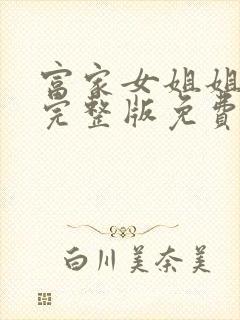 富家女姐姐
完整版免費
白川美奈美